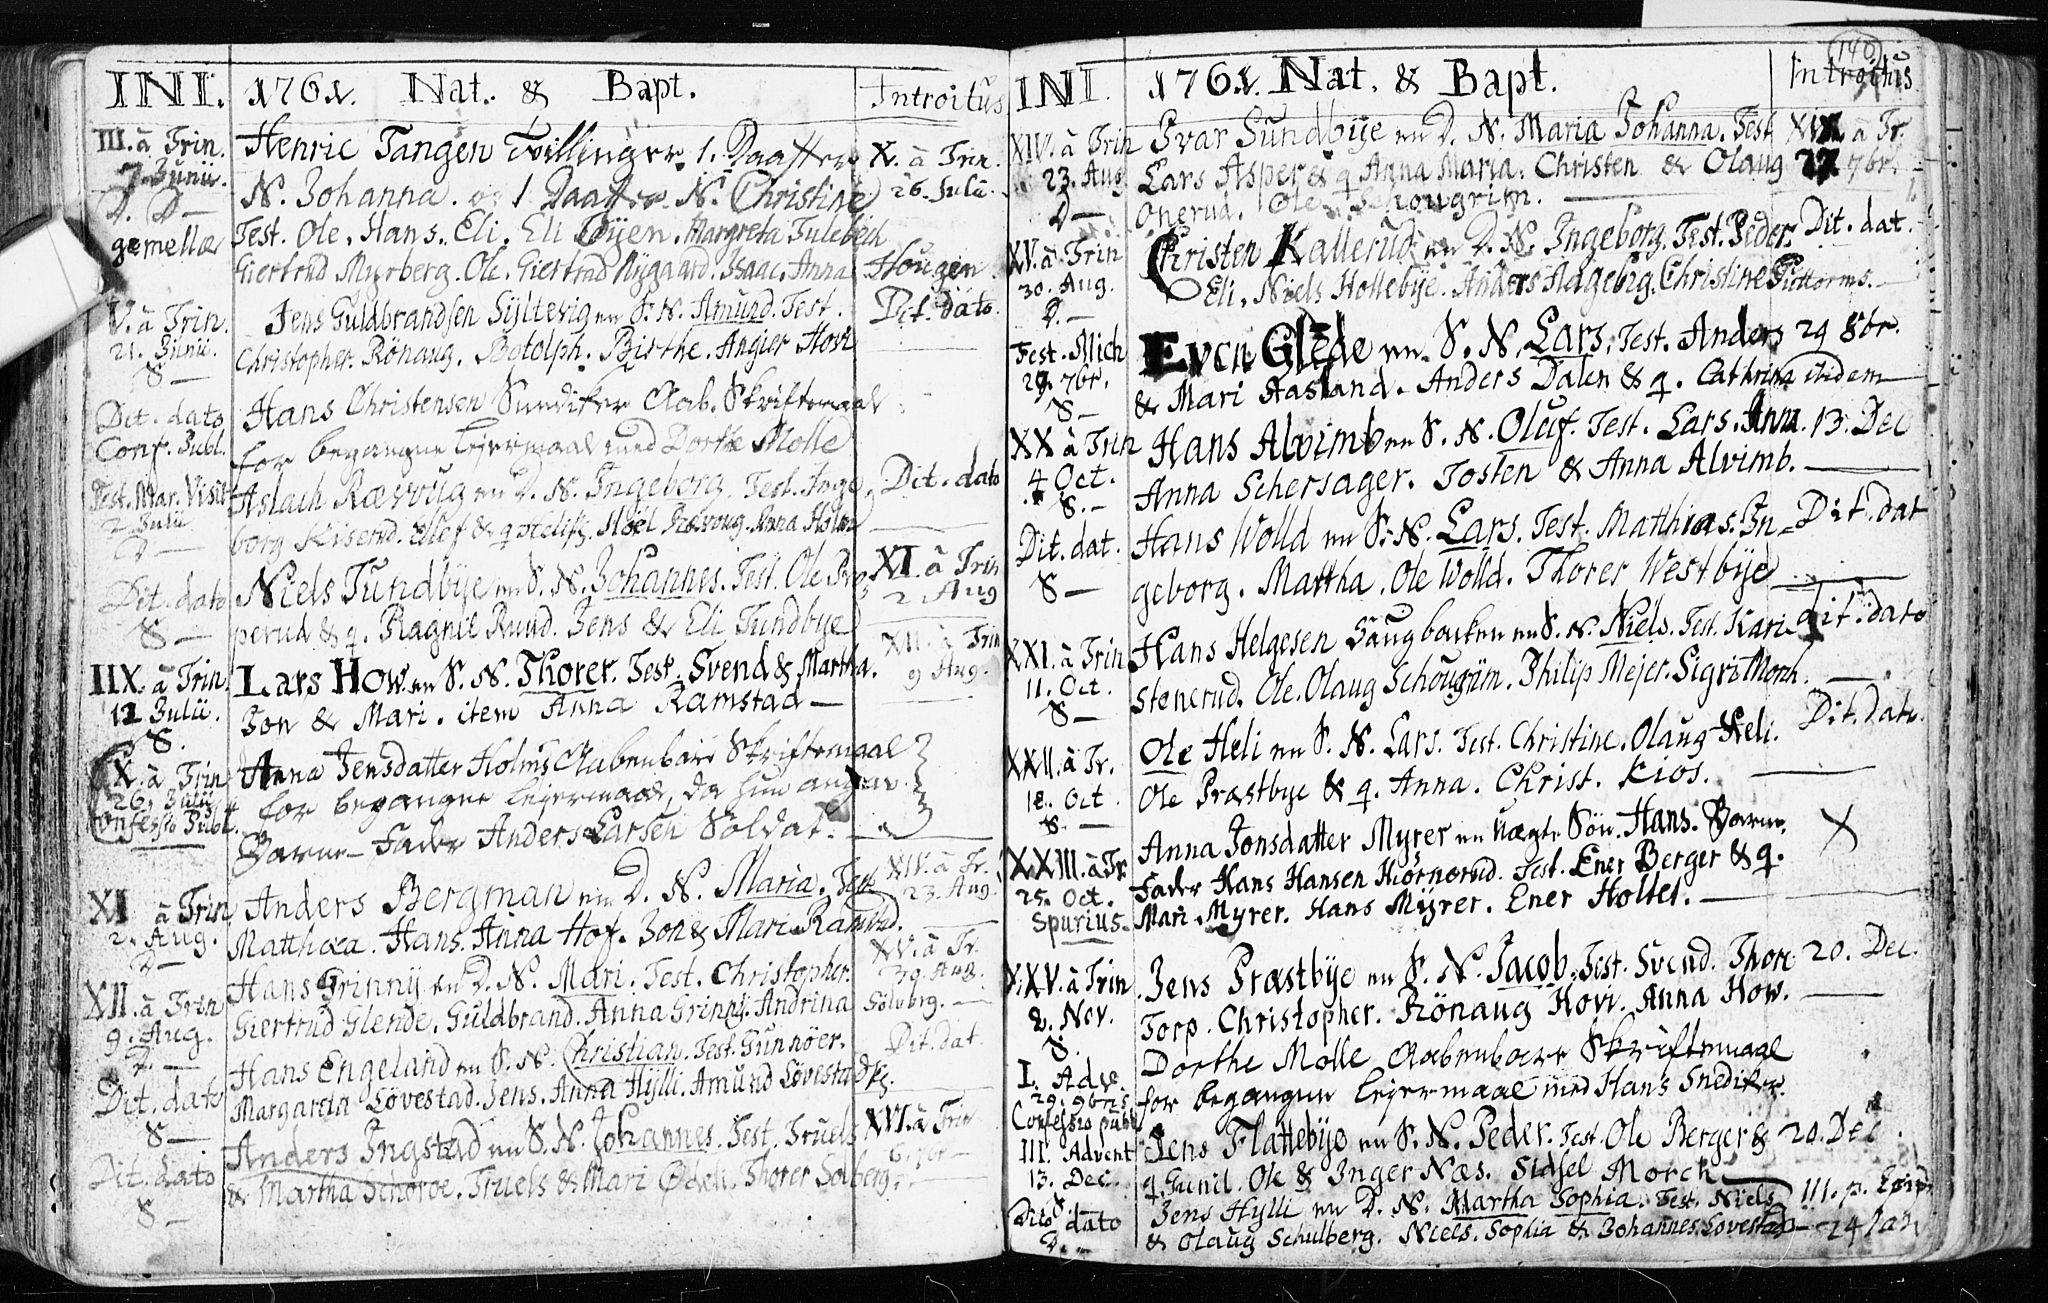 INI. 1761. Nat. & Bapt. Introitus
III. à Trin. Henric Tangen Tvillinger. 1. Daatter X. à Trin.
7. Junii. N. Johanna. og 1 Daatter N. Christine 26. Julii.
D. D— Test. Ole. Hans. Eli. Eli Øyen. Margreta Tulebech
gemellæ Giertrud Myrberg. Ole. Giertrud Nygaard. Isaac. Anna Hougen
V. à Trin. Jens Guldbrandsen Syltevig en S. N. Amund. Test. Dit. dato.
21. Junii. Christopher. Rönaug. Botolph. Birthe. Angier Hovi
S—
Dit. dato Hans Christensen Snediker Aab. Skriftemaal
Conf. Publ. for begangne lejermaal med Dorthe Molle
Fest. Mar. Visit Aslach Rævoug en D. N. Ingeborg. Test. Inge Dit. dato
2 Julii borg Kiserud. & q Anna Holm
D—
Dit. dato Niels Tundbye en S. N. Johannes. Test. Ole Pro XI. à Trin
S— perud & q. Ragnil Ruud. Jens & Eli Tundbye 2 Aug
IIX. à Trin. Lars How en S. N. Thorer. Test. Svend & Martha. XII. à Trin
12 Julii. Jon & Mari. item Anna Ramstad— 9 Aug.
S.
X. à Trin Anna Jensdatter Holms Aabenbare Skriftemaal
26. Julii for begangne lejermaal, da hun angav
Confessio Publ. Barne-Fader Anders Larsen Soldat.
XI à Trin Anders Bergman en D. N. Maria. Test XIV. à Tr.
2. Aug. Matthæa. Hans. Anna Hof. Jon & Mari Ramstad. 23. Aug.
D—
XII. à Trin Hans Grinny en D. N. Mari. Test. Christopher. XV. à Tr.
9. Aug. Giertrud Glende. Guldbrand. Anna Grinny. Andrina Sölvberg.—
D.—
Dit. dato Hans Engeland en S. N. Christian. Test. Gunnöer. Dit. dat.
S— Margareta Lövestad. Jens. Anna Hylli. Amund Lövestad
Dit. dato Anders Ingstad en S. N. Johannes. Test. Truels XVI. à Trin
S— & Martha Schoroe. Truels & Mari Ødeli. Thorer Solberg.
140
INI. 1761. Nat. & Bapt. Introitus
XIV. à Trin Ivar Sundbye en D. N. Maria Johanna. Test à Tr.
23. Aug Lars Asper & q Anna Maria. Christen & Olaug 27. 7br.
D— Onerud. Ole Schougrim.
XV. à Trin Christen Kallerud en D. N. Ingeborg. Test. Peder Dit. dat.
30. Aug. Eli. Niels Hollebye. Anders Christine
D.—
Fest. Mich Even Glede en S. N. Lars. Test. Anders 29 8br.
29. 7br. & Mari Aasland. Anders Dalen & q. Cathrina ibidem
S—
XX à Trin Hans Alvimb en S. N. Oluf. Test. Lars. Anna. 13. Dec
4 Oct. Anna Schersager. Tosten & Anna Alvimb.
S.—
Dit. dat. Hans Wolld en S. N. Lars. Test. Matthias. In- Dit. dat
S— geborg. Martha. Ole Wolld. Thorer Westbye
XXI. à Trin Hans Helgesen Saugbonken en S. N. Niels. Test. Kari dit. dato
11. Oct. Stenerud. Ole. Olaug Schougrim. Philip Mejer. Sigri Morch.
S—
XXII. à Tr. Ole Heli en S. N. Lars. Test. Christine. Olaug Heli. Dit. dato.
18. Oct Ole Præstbye & q. Anna. Christ. Kios.
S.—
XXIII. à Tr. Anna Jonsdatter Myrer en Uægte Sön. Hans. Barne- X
25. Oct. Fader Hans Hansen Hiörnerud. Test. Ener Berger & q.
Spurius. Mari Myrer. Hans Myrer. Ener Holtet.
XXV. à Trin Jens Præstbye en S. N. Jacob. Test. Svend. Thore 20. Dec.
8. Nov. Torp. Christopher. Rönaug Hovi. Anna How.
S.
I. Adv. Dorthe Molle Aabenbare Skriftemaal
29. 9bris for begangne lejermaal med Hans Snediker.
Confessio publ.
III. Advent Jens Flattebye en S. N. Peder. Test. Ole Berger & 20. Dec
13. Dec. q. Gunil. Ole & Inger Næs. Sidsel Morch
S.
Dito dato Jens Hylli en D. N. Martha Sophia. Test. Niels III. p. Epiph
D.— & Olaug Schulberg. Niels. Sophia & Johannes Lovestad— 24 Jan